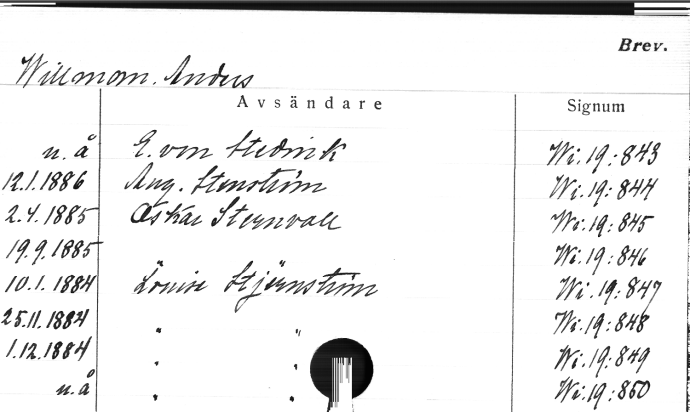 Brev.
Willman. Anders
Avsändare Signum
u. å E. von Stedink Wi. 19: 843
12.1.1886 Aug. Stenström Wi. 19: 844
2.4.1885 Oskar Sternvall Wi. 19: 845
19.9.1885 Wi. 19: 846
10.1.1884 Louise Stjernström Wi. 19: 847
25.11.1884 " " Wi. 19: 848
1.12.1884 " " Wi. 19: 849
u. å " " Wi. 19: 850